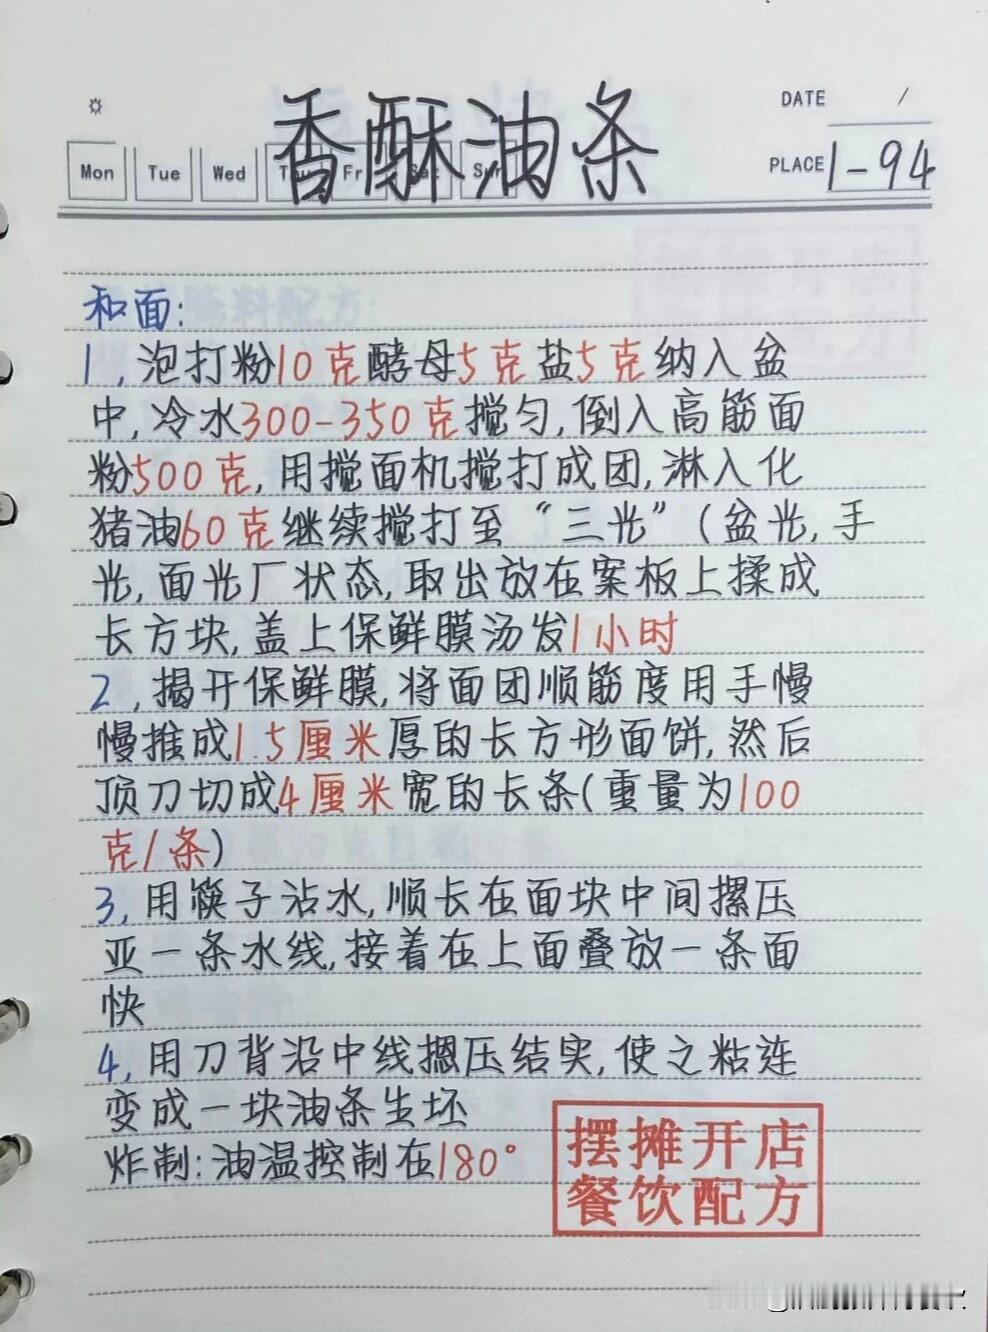 香酥油条
DATE /
Mon Tue Wed Thu Fr Sat Sun
PLACE 1-94
和面:
1,泡打粉10克酵母5克盐5克纳入盆
中,冷水300-350克搅匀,倒入高筋面
粉500克,用搅面机搅打成团,淋入化
猪油60克继续搅打至“三光”(盆光,手
光,面光厂状态,取出放在案板上揉成
长方块,盖上保鲜膜汤发1小时
2,揭开保鲜膜,将面团顺筋度用手慢
慢推成1.5厘米厚的长方形面饼,然后
顶刀切成4厘米宽的长条(重量为100
克/条)
3,用筷子沾水,顺长在面块中间摞压
亚一条水线,接着在上面叠放一条面
快
4,用刀背沿中线摁压结实,使之粘连
变成一块油条生坯
炸制:油温控制在180°
摆摊开店
餐饮配方